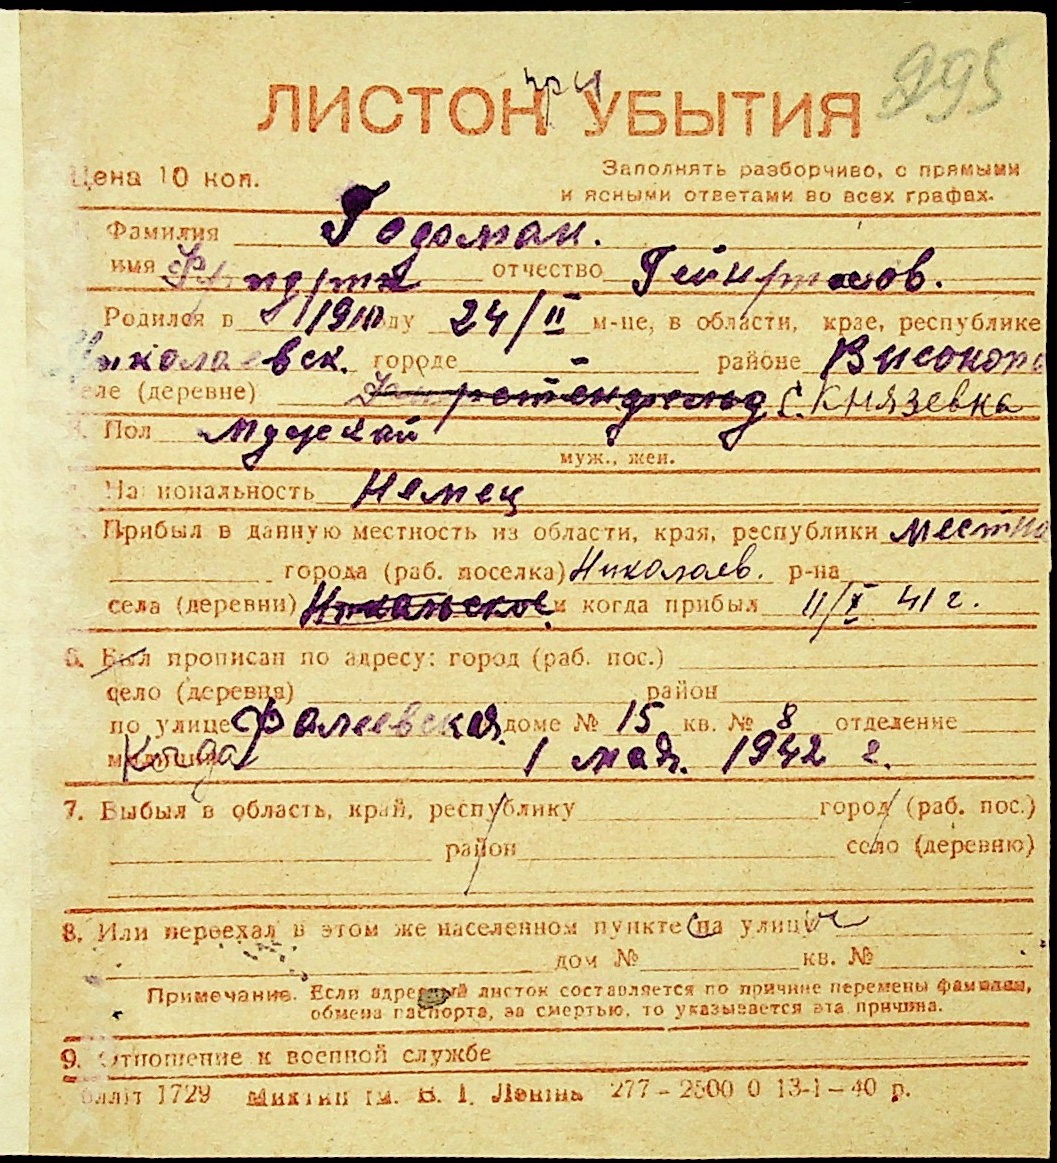 995
при
ЛИСТОК УБЫТИЯ
Цена 10 коп.
Заполнять разборчиво, с прямыми
и ясными ответами во всех графах.
Фамилия Годоман.
имя отчество
Родился в 1910 ду 24/II м-це, в области, крае, республике
Николаевск. городе - районе Високопо
селе (деревне) с. Князевка
3. Пол мужской
муж., жен.
Национальность Немец
Прибыл в данную местность из области, края, республики местно
города (раб. поселка) Николаев. р-на
села (деревни) Никольское и когда прибыл 11/X 41 г.
6. Был прописан по адресу: город (раб. пос.)
село (деревня) район
по улице Фалеевская доме № 15 кв. № 8 отделение
милиции Когда 1 мая. 1942 г.
7. Выбыл в область, край, республику город (раб. пос.)
район село (деревню)
8. Или переехал в этом же населенном пункте на улицу
дом № кв. №
Примечание. Если адресный листок составляется по причине перемены фамилии,
обмена паспорта, за смертью, то указывается эта причина.
9. Отношение к военной службе
1729 ім. В. І. Леніна 277 - 2500 0 13-1-40 р.